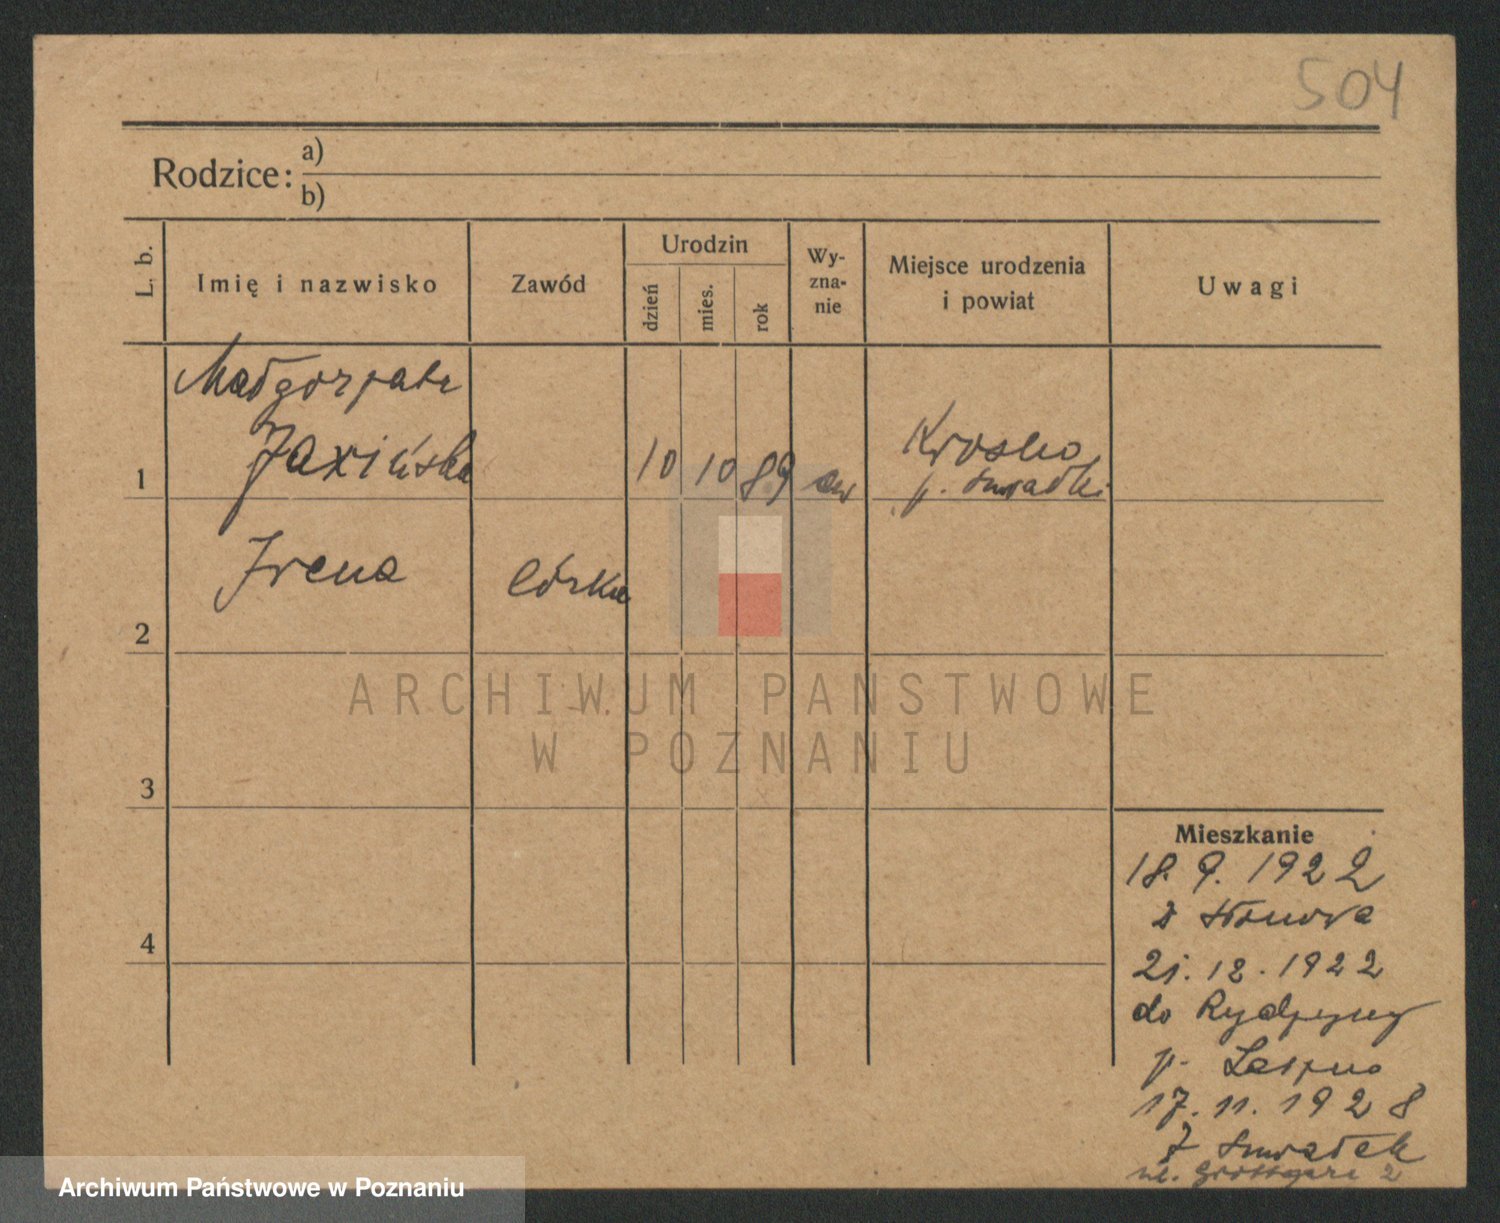 504
Rodzice: a)
b)
L. b.
Imię i nazwisko
Zawód
Urodzin
dzień
mies.
rok
Wy-
zna-
nie
Miejsce urodzenia
i powiat
Uwagi
Małgorzata
Jaxińska
1
10 10 89 ew
Krosko
p.
Irena
córka
2
3
4
ARCHIWUM PAŃSTWOWE
W POZNANIU
Mieszkanie
18. 9. 1922
21. 12. 1922
do Rydzyny
p. Leszno
17. 11. 1928
ul. 2
Archiwum Państwowe w Poznaniu